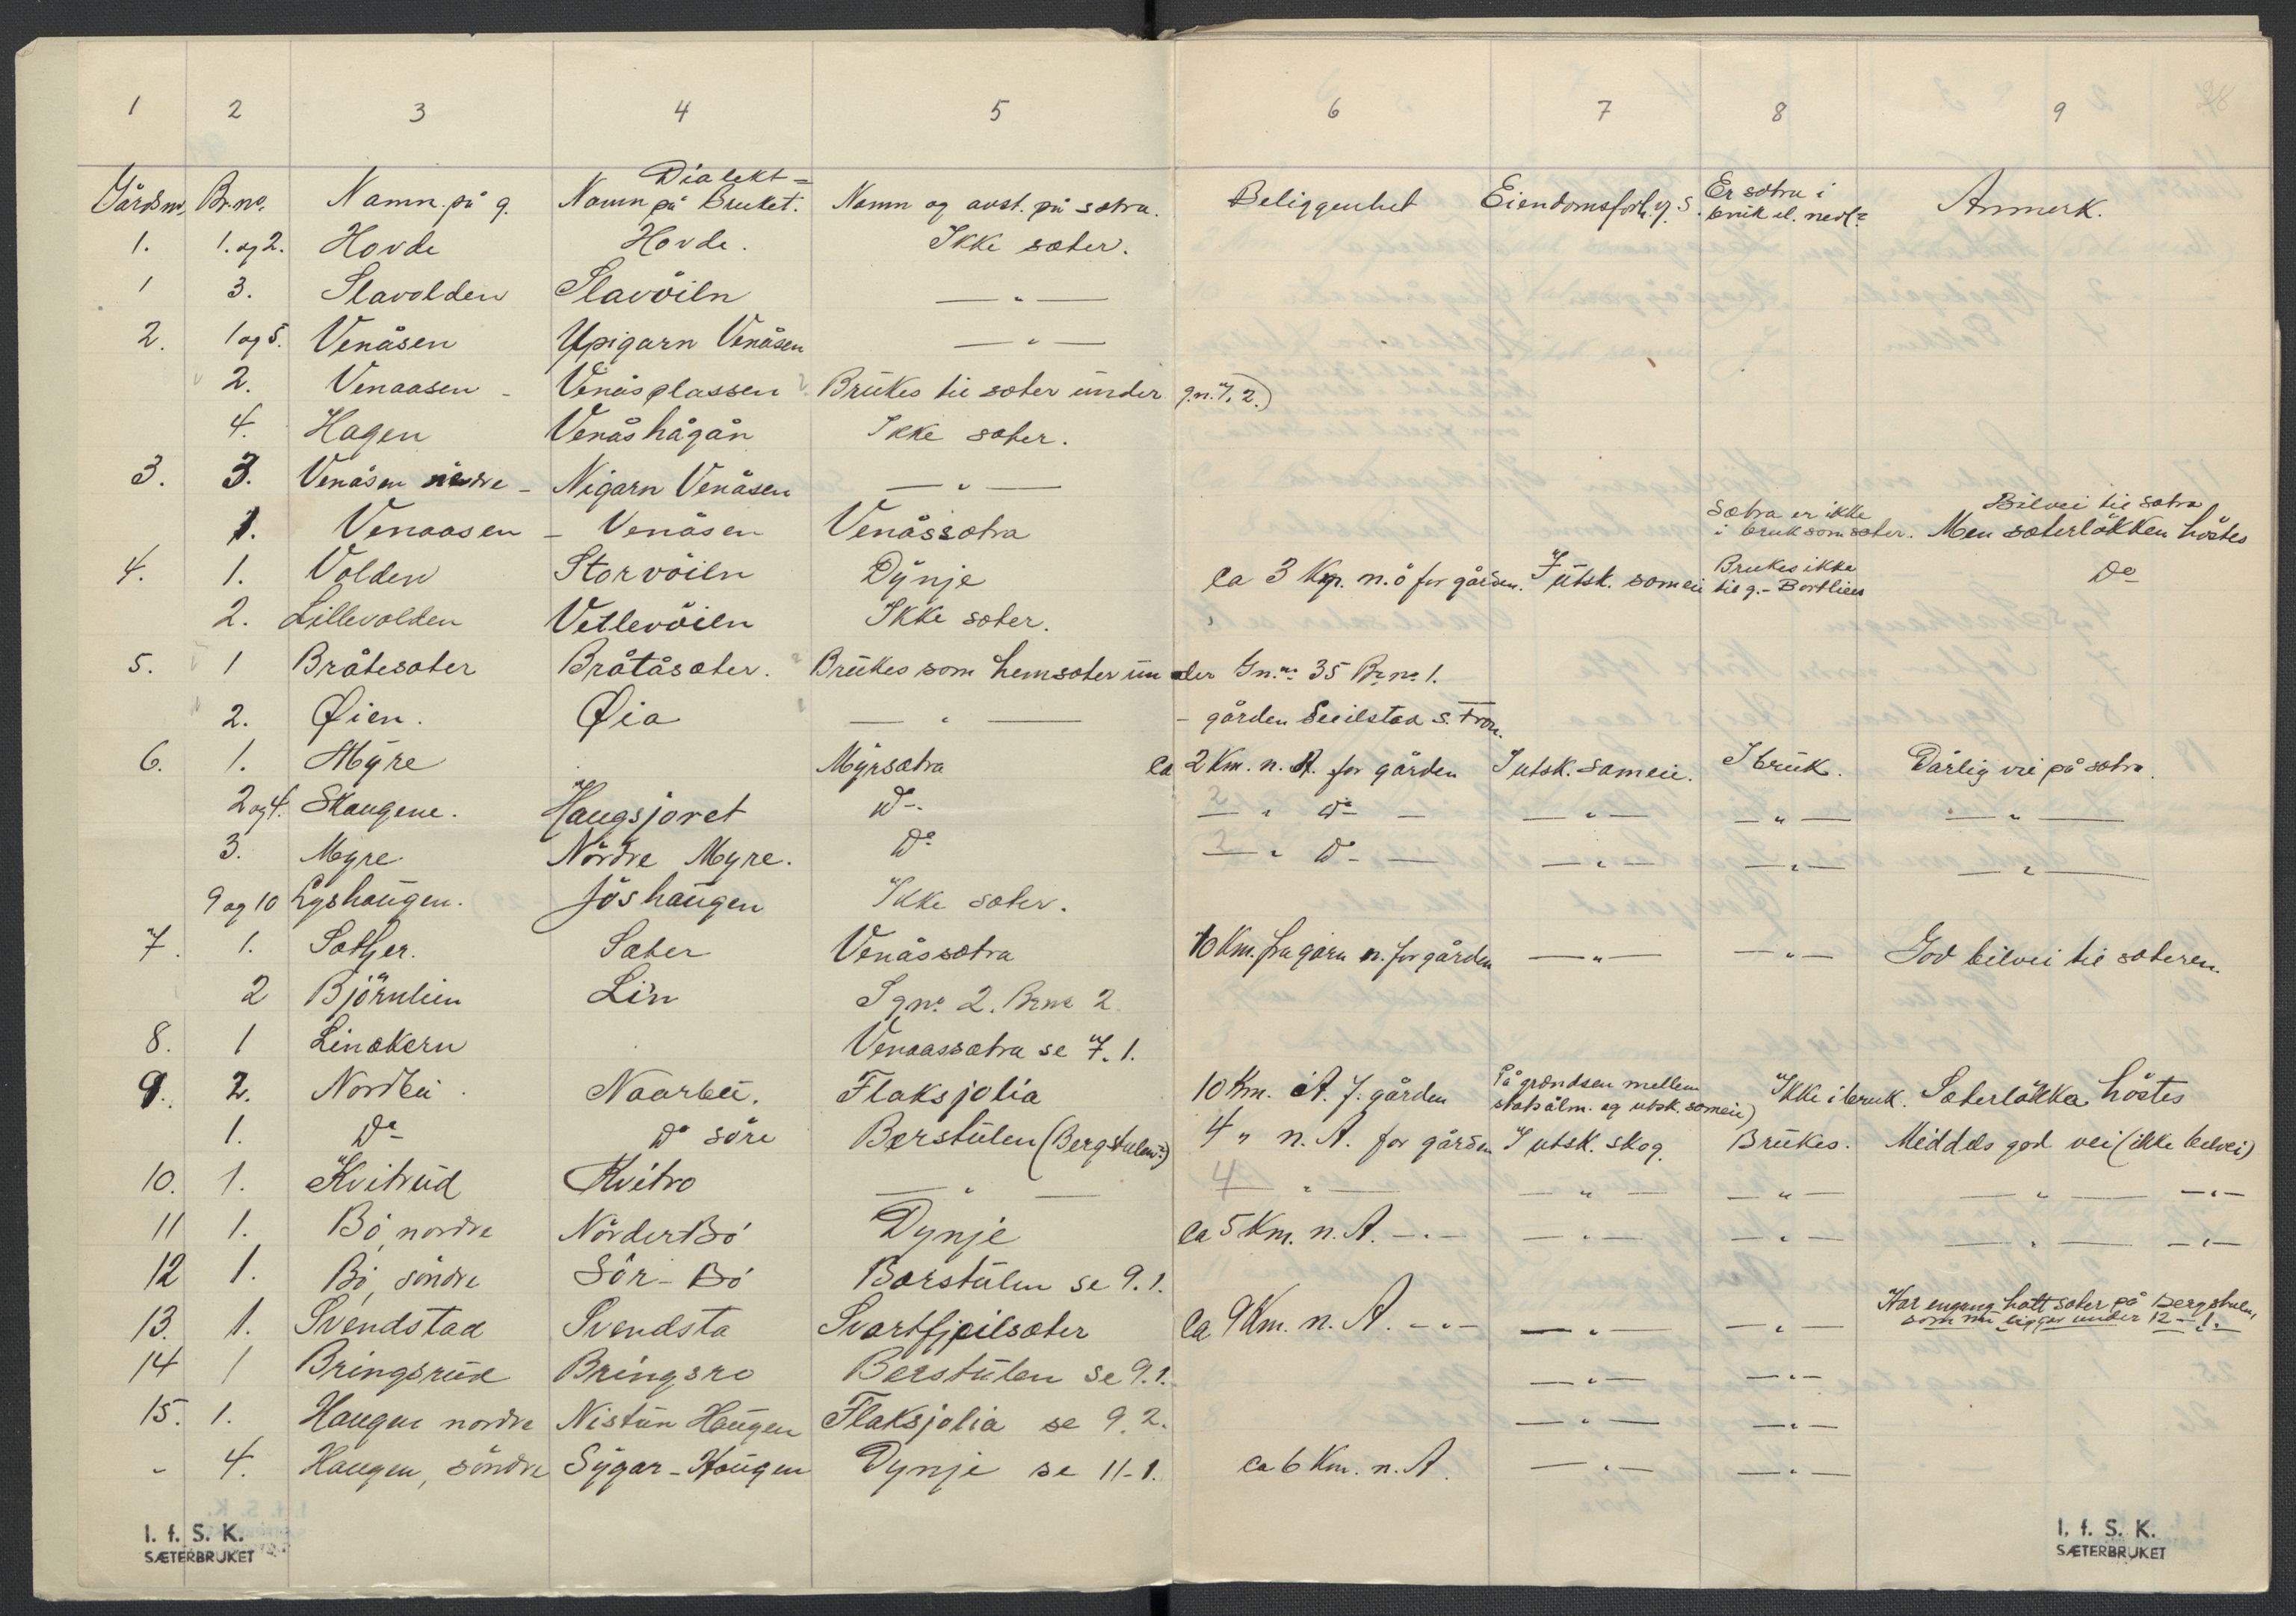 1 2 3 4 5 6 7 8 9
Gårdsno. Br.no. Namn på g. Dialekt= Namn på Bruket. Namn og avst. på sætra. Beliggenhet Eiendomsforh. Er sætra i bruk el. nedl? Anmerk.
1. 1. og 2. Hovde Hovde. Ikke sæter.
1 3. Slavolden Slavöiln — " —
2. 1 og 5. Venåsen Upigarn Venåsen — " —
2. Venaasen - Venåsplassen Brukes til sæter under g.n. 7, 2.)
4. Hagen Venåshågån Ikke sæter.
3. 3. Venåsen nedre - Nigarn Venåsen — " —
1. Venaasen - Venåsen Venåssætra Sætra er ikke i bruk som sæter. Bilvei til sætra Men sæterlökken höstes
4. 1. Volden Storvöiln Dynje Ca 3 Km. n.ö for gården. I utsk. sameie Brukes ikke til g. - Bortleies Do
2. Lillevolden Vetlevöiln Ikke sæter.
5. 1 Bråtesæter Bråtåsæter. Brukes som hemsæter under Gn.no: 35 Br.no 1.
2. Øien. Øia — " — - gården S. Fron.
6. 1. Myre Myrsætra Ca 2 Km. n. A. for gården I utsk. sameie. I bruk. Dårlig vei på sætra.
2 og 4. Skaugene. Haugsjoret Do. 2 " Do — — " — — " — — " —
3. Myre Nördre Myre. Do 2 " Do — — " — — " — — " —
9 og 10 Lyshaugen. Jöshaugen Ikke sæter.
7. 1. Sæther. Sæter Venåssætra 10 Km. fra garn n. for gården — " — — " — God bilvei til sæteren.
2 Björnlien Li'n S gno. 2. Brno 2.
8. 1 Linåkern Venaassætra se 7. 1.
9. 2. Nordbu. Naarbu. Flaksjolia 10 Km. A. f. gården På grændsen mellem statsalm. og utsk. sameie) Ikke i bruk. Sæterlökka höstes
1. Do Do söre Bærstulen (Bergstulen?) 4 " n. A. for gården I utsk. skog. Brukes. Middels god vei (ikke bilvei)
10. 1. Kvitrud Kvitro — " — 4 " — — " — — " — — " — — " —
11 1. Bö, nordre NörderBö Dynje Ca 5 Km. n. A. — " — — " — — " — — " — — " —
12 1. Bö, söndre Sör-Bö Bærstulen se 9.1.
13. 1. Svendstad Svendsta Svartfjeilsæter Ca 9 Km. n. A. — " — — " — — " — Har engang hatt sæter på Bergstulen, som nu ligger under 12 - 1.
14 1 Bringsrud Bringsro Berstulen se 9.1. — " — — " —
15. 1. Haugen nordre Nistun Haugen Flaksjolia se 9.2. — " — — " —
- 4. Haugen, söndre Sygar-Haugen Dynje se 11-1. Ca 6 Km. n. A. — " — — " —
I. f. S. K.
SÆTERBRUKET
I. f. S. K.
SÆTERBRUKET